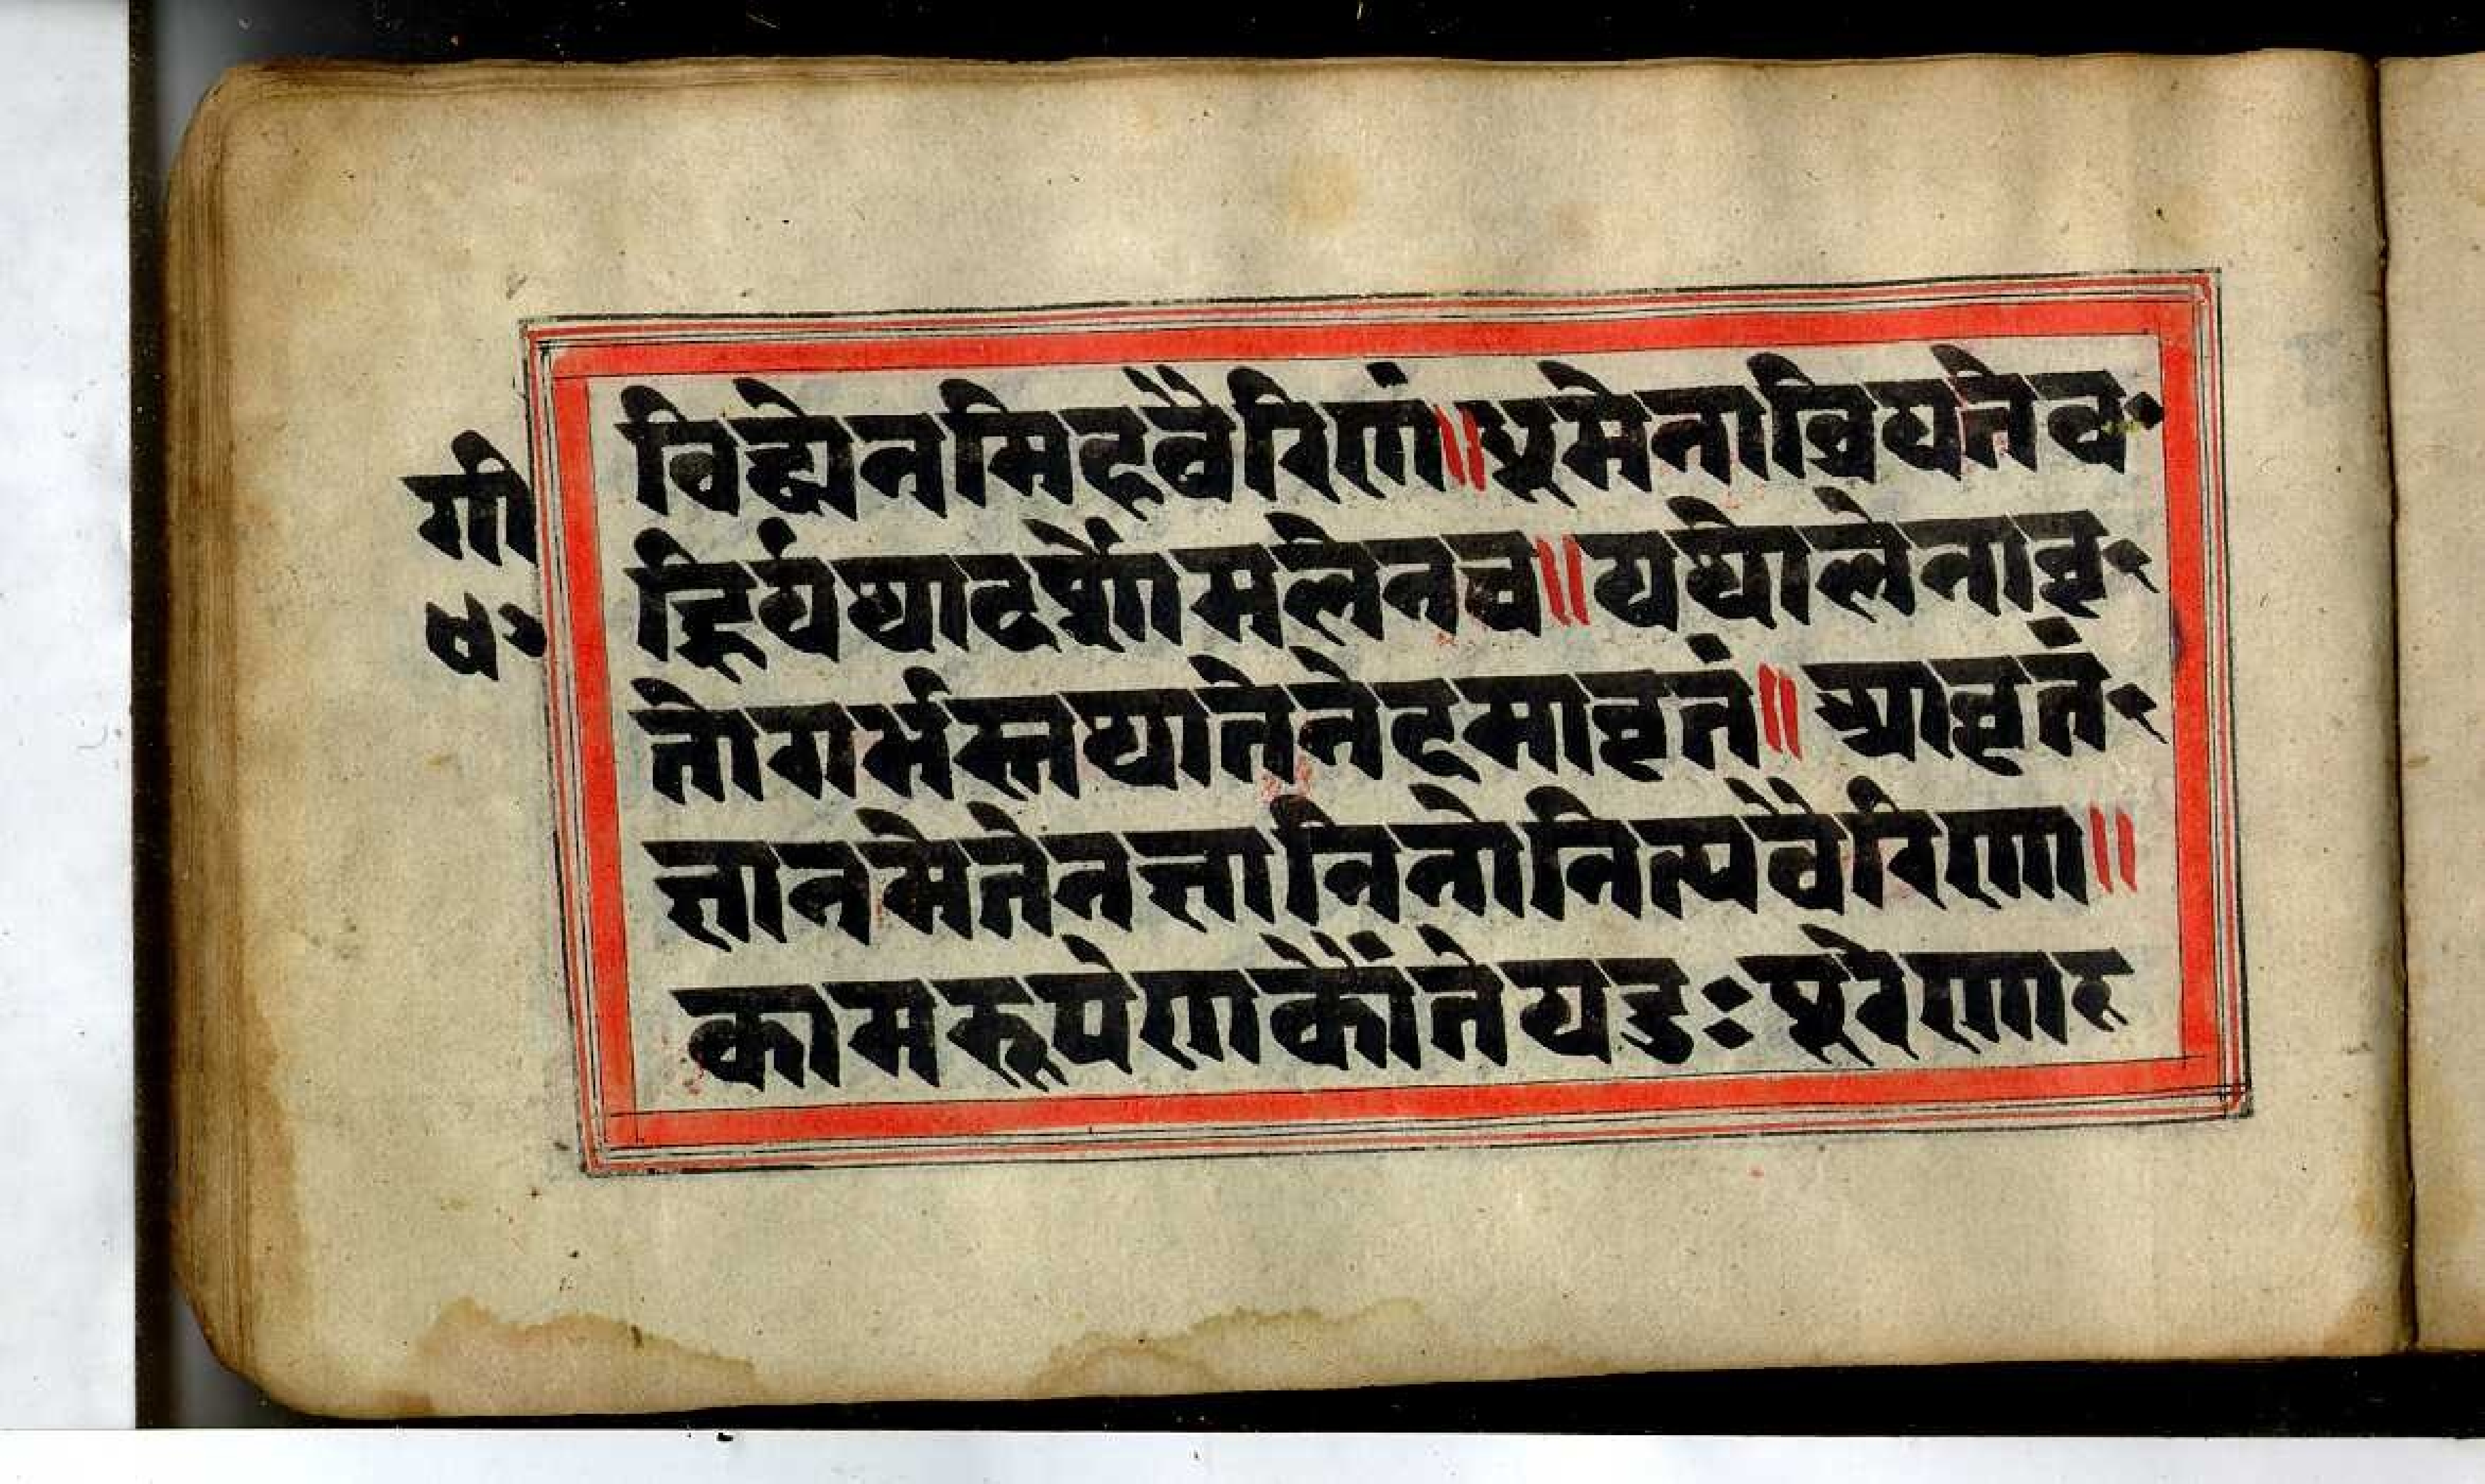 गी
व॰
विद्ध्येनमिहवैरिणं॥धूमेनाव्रियतेव॰
ह्निर्यथादर्शोमलेनच॥यथोल्बेनावृ
तोगर्भस्तथातेनेदमावृतं॥आवृतं
ज्ञानमेतेनज्ञानिनोनित्यवैरिणा॥
कामरूपेणकौंतेयदुःपूरेणान